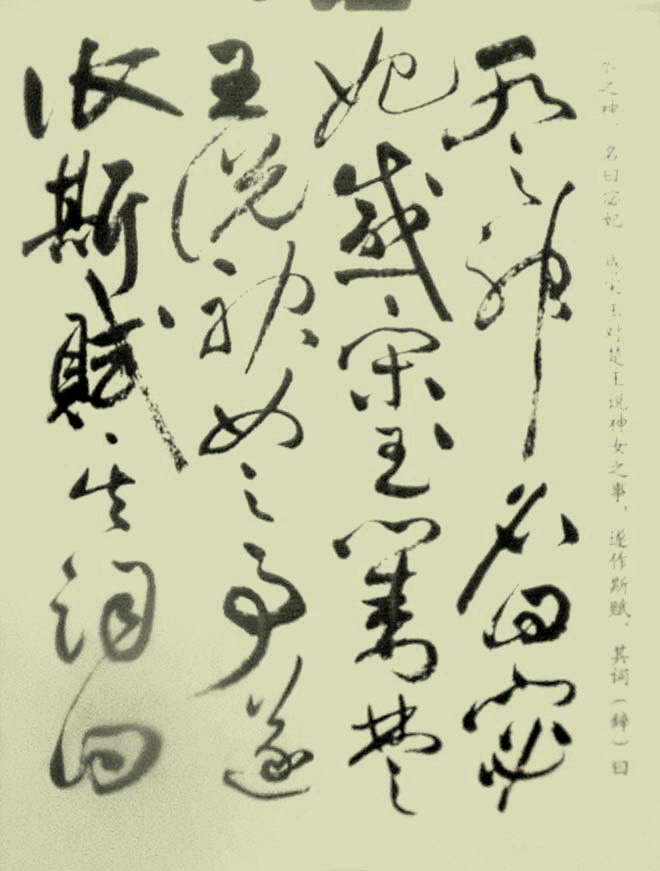 水之神、名曰宓妃 感宋玉对楚王说神女之事，遂作斯赋、其词（辞）曰
水之神名曰宓
妃感宋玉對楚
王說神女之事遂
作斯賦其詞曰